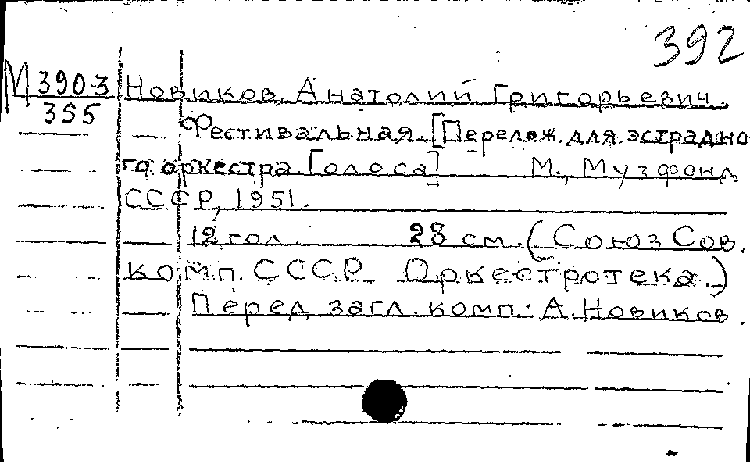 392
М 390-3 Новиков, Анатолий Григорьевич.
355 Фестивальная. [Перелож. для эстрадно
го оркестра. Голоса] М., Музфонд
СССР, 1951.
12 гол. 28 см. (Союз Сов.
комп. СССР. Оркестротека.)
Перед загл. комп.: А. Новиков.